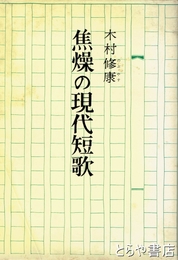 木村修康
焦燥の現代短歌
とらや書店